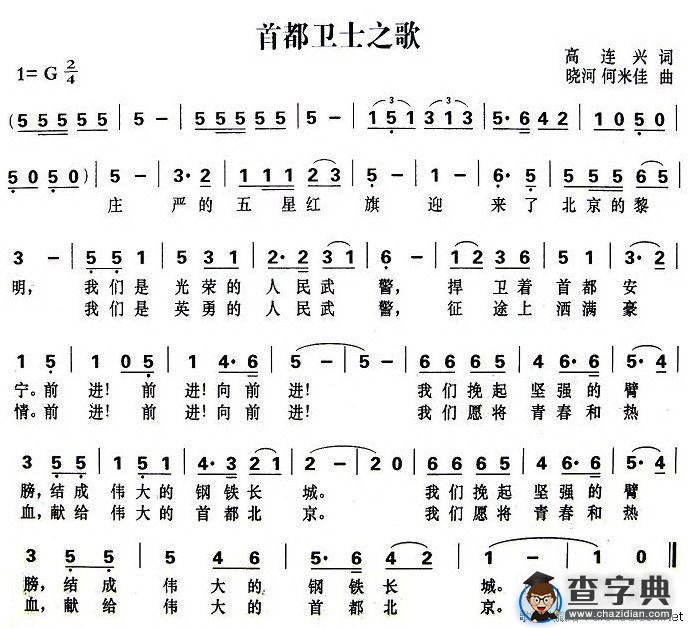 首都卫士之歌
1= G 2/4
高 连 兴 词
晓河 何米佳 曲
( 5 5 5 5 5 | 5 - | 5 5 5 5 5 | 5 - | 1 5 1 3 1 3 | 5· 6 4 2 | 1 0 5 0 |
5 0 5 0 ) | 5 - | 3· 2 | 1 1 1 2 3 | 5 - | 1 - | 6· 5 | 5 5 5 6 5 |
庄 严的 五星红 旗 迎 来了 北京的黎
3 - | 5 5 1 | 3 5 5 1 | 2· 2 3 1 | 6 - | 1 2 3 3 | 3· 2 |
明, 我们是 光荣的 人民武 警, 捍卫着首都安
我们是 英勇的 人民武 警, 征途上洒满豪
1 5 | 1 0 5 | 1 4· 6 | 5 - | 5 - | 6 6 6 6 | 1 4· 6 | 5· 4 |
宁。前 进! 前 进! 向前 进! 我们挽起 坚强的 臂
情。前 进! 前 进! 向前 进! 我们愿将 青春和 热
3 5 5 | 1 5 1 | 4· 3 2 1 | 2 - | 2 0 | 6 6 6 6 | 1 4· 6 | 5· 4 |
膀,结成 伟大的 钢铁长 城。 我们挽起 坚强的 臂
血,献给 伟大的 首都北 京。 我们愿将 青春和 热
3 5 5 | 1 5 1 | 5· 6 4 2 | 1 - | 1 0 ||
膀,结成 伟大的 钢铁长 城。
血,献给 伟大的 首都北 京。
查字典
www.chazidian.com